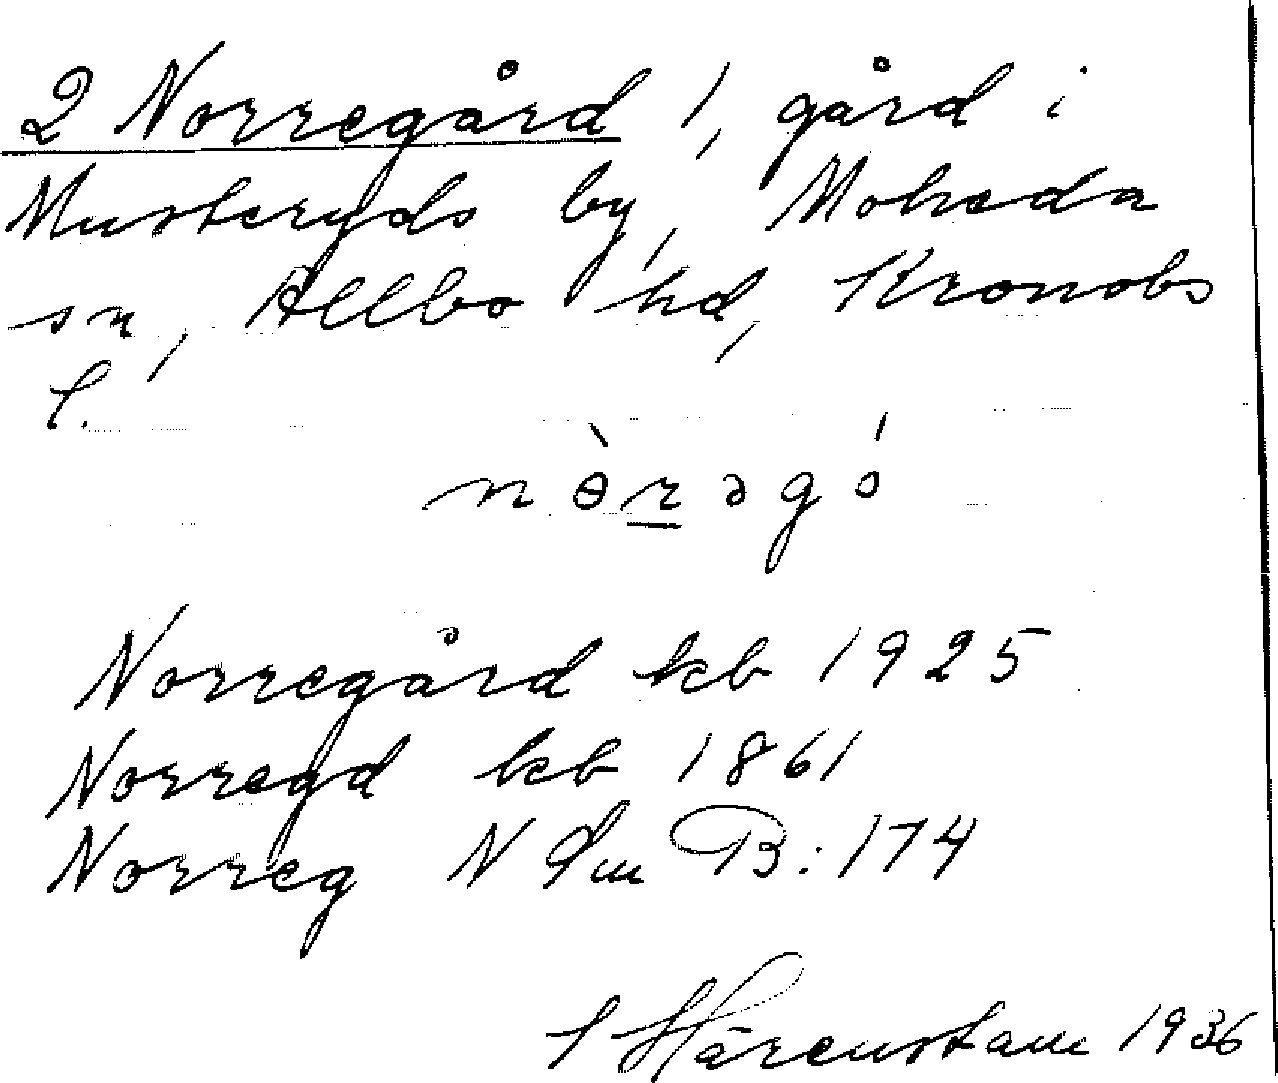 2 Norregård 1, gård i
Musteryds by, Moheda
sn, Allbo hd, Kronobs
l.
nɵ̀rəgó
Norregård kb 1925
Norregd kb 1861
Norreg N Sm B: 174
S Härenstam 1936